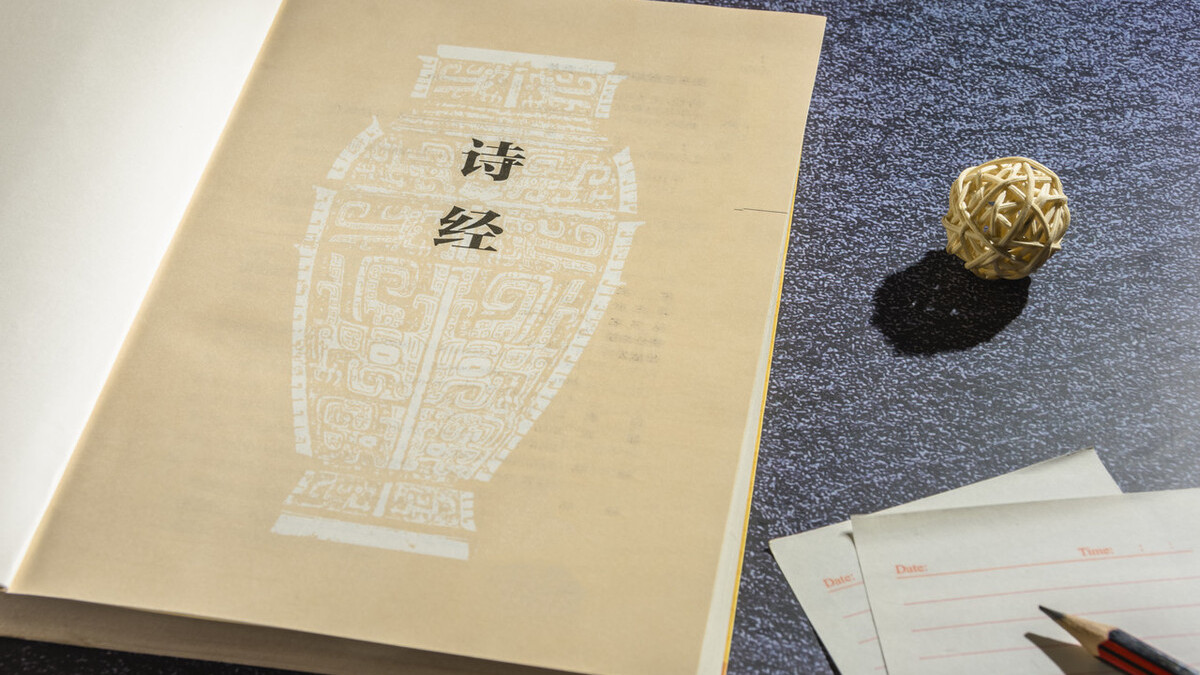 诗
经
Time: :
Date:
Date: